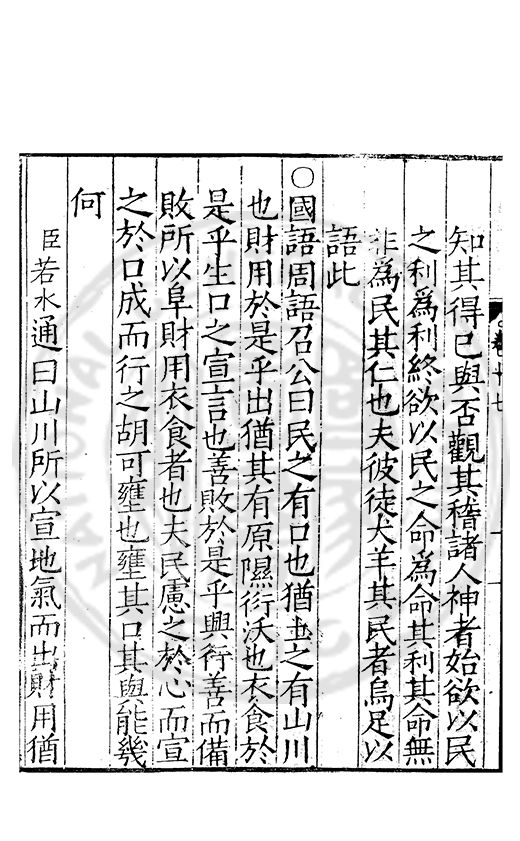 卷十七
知其得已與否觀其稽諸人神者始欲以民
之利爲利終欲以民之命爲命其利其命無
非爲民其仁也夫彼徒犬羊其民者烏足以
語此
〇國語周語召公曰民之有口也猶土之有山川
也財用於是乎出猶其有原隰衍沃也衣食於
是乎生口之宣言也善敗於是乎興行善而備
敗所以阜財用衣食者也夫民慮之於心而宣
之於口成而行之胡可壅也壅其口其與能幾
何
臣若水通曰山川所以宣地氣而出財用猶